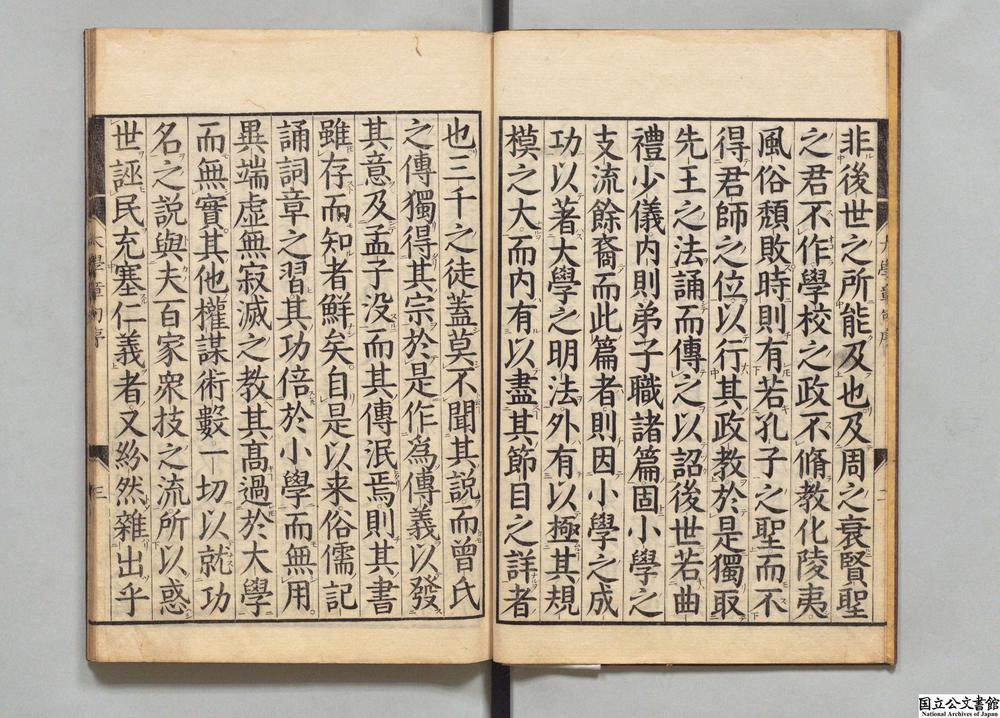 非後世之所能及也及周之衰賢聖
之君不作學校之政不脩教化陵夷
風俗頽敗時則有若孔子之聖而不
得君師之位以行其政教於是獨取
先王之法誦而傳之以詔後世若曲
禮少儀内則弟子職諸篇固小學之
支流餘裔而此篇者則因小學之成
功以著大學之明法外有以極其規
模之大而内有以盡其節目之詳者
也三千之徒蓋莫不聞其説而曾氏
之傳獨得其宗於是作為傳義以發
其意及孟子没而其傳泯焉則其書
雖存而知者鮮矣自是以来俗儒記
誦詞章之習其功倍於小學而無用
異端虚無寂滅之教其髙過於大學
而無實其他權謀術數一切以就功
名之説與夫百家衆技之流所以惑
世誣民充塞仁義者又紛然雜出乎
大學章句序
三
国立公文書館
National Archives of Japan